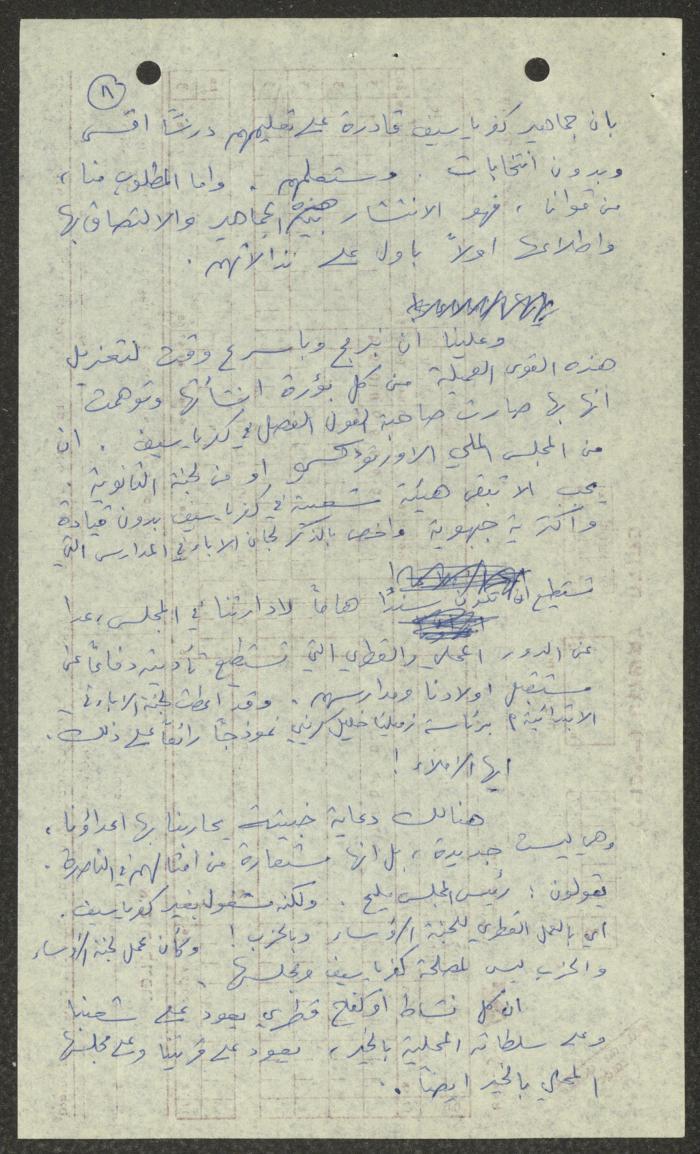 ٨
بان جماهير كفرياسيف قادرة على تعليمهم درسًا اقسى
وبدون انتخابات . وستعلمهم . واما المطلوب منا ،
من قوانا ، فهو الانتشار بين هذه الجماهير والالتصاق بها
واطلاعها اولاً باول على نذالاتهم .
وعلينا ان نبرمج وباسرع وقت لتعزيل
هذه القوى العميلة من كل بؤرة انشأتها وتوهمت
انها بها صارت صاحبة القول الفصل في كفرياسيف . ان
من المجلس الملي الاورثوذكسي او من لجنة الثانوية .
يجب الا تبقى هيئة شعبية في كفرياسيف بدون قيادة
واكثرية جبهوية واخص بالذكر لجان الاباء في المدارس التي
تستطيع ان تكون سندًا هامًا لادارتنا في المجلس ، عدا
عن الدور المحلي والقطري التي تستطيع تأديته دفاعًا عن
مستقبل اولادنا ومدارسهم . وقد اعطت لجنة الاباء في
الابتدائية برئاسة زميلنا خليل نموذجًا رائعًا على ذلك .
ايها الاخلاء !
هنالك دعاية خبيثة يحاربنا بها اعداؤنا ،
وهي ليست جديدة ، بل انها مستعارة من امثالهم في الناصرة .
يقولون : رئيس المجلس مليح . ولكنه مشغول بغير كفرياسيف .
اي بالعمل القطري للجنة الرؤساء وبالحزب ! وكأن عمل لجنة الرؤساء
والحزب ليس لمصلحة كفرياسيف ومجلسها .
ان كل نشاط او كفاح قطري يعود على شعبنا
وعلى سلطاته المحلية بالخير ، يعود على قريتنا وعلى مجلسها
المحلي بالخير ايضًا .